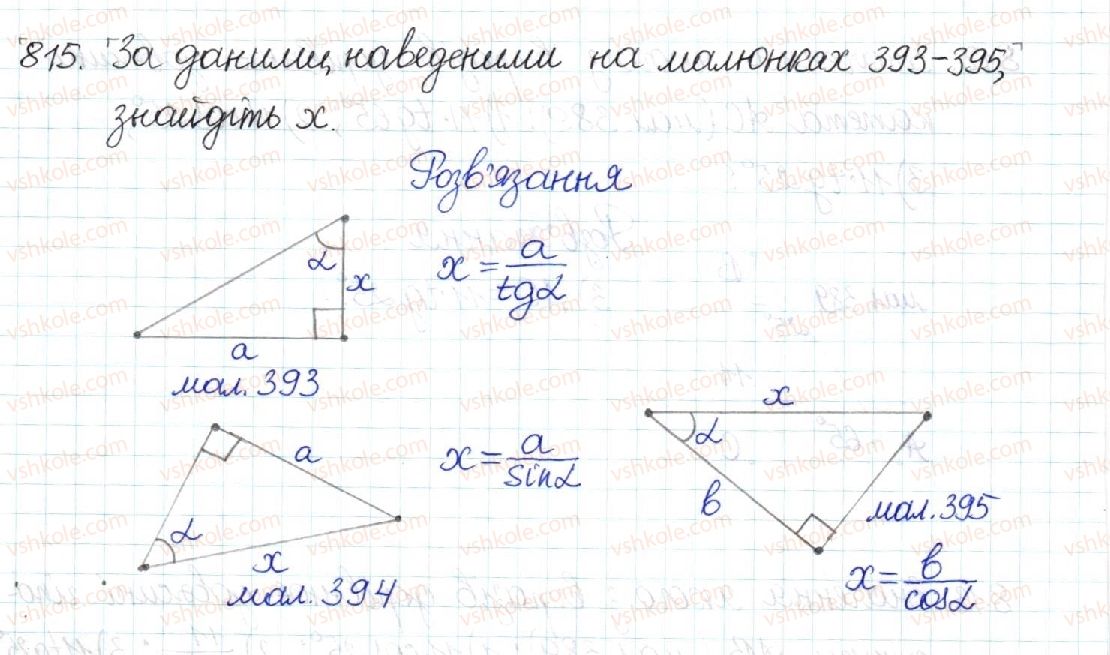 815. За даними, наведеними на малюнках 393-395,
знайдіть x.
Розв'язання
α
x
a
мал. 393
x = a/tgα
a
α
x
мал. 394
x = a/sinα
x
α
в
мал. 395
x = в/cosα